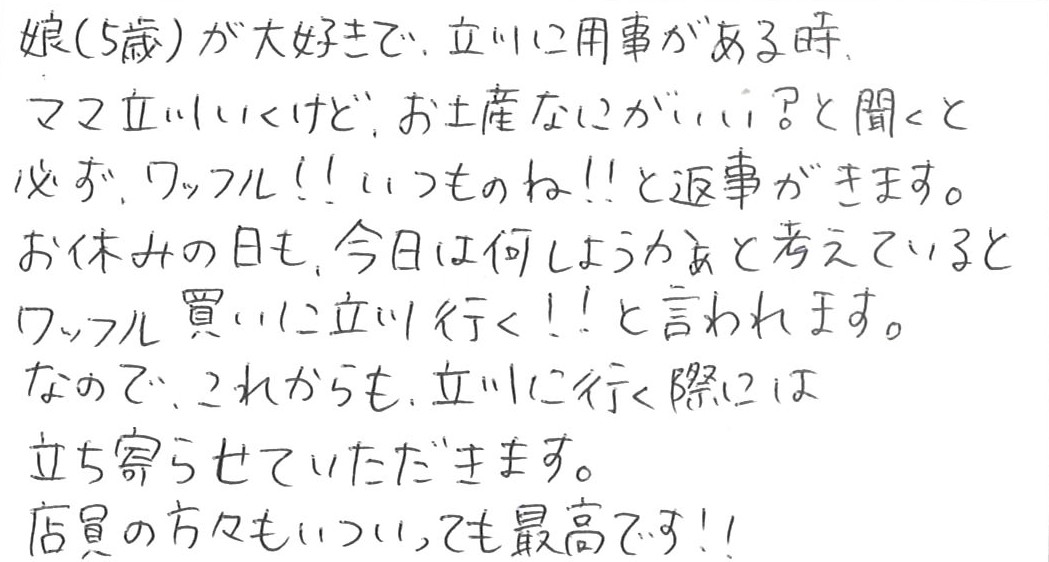 娘(5歳)が大好きで、立川に用事がある時、
ママ立川いくけど、お土産なにがいい?と聞くと
必ず、ワッフル!!いつものね!!と返事がきます。
お休みの日も、今日は何しようかぁと考えていると
ワッフル買いに立川行く!!と言われます。
なので、これからも、立川に行く際には
立ち寄らせていただきます。
店員の方々もいついっても最高です!!